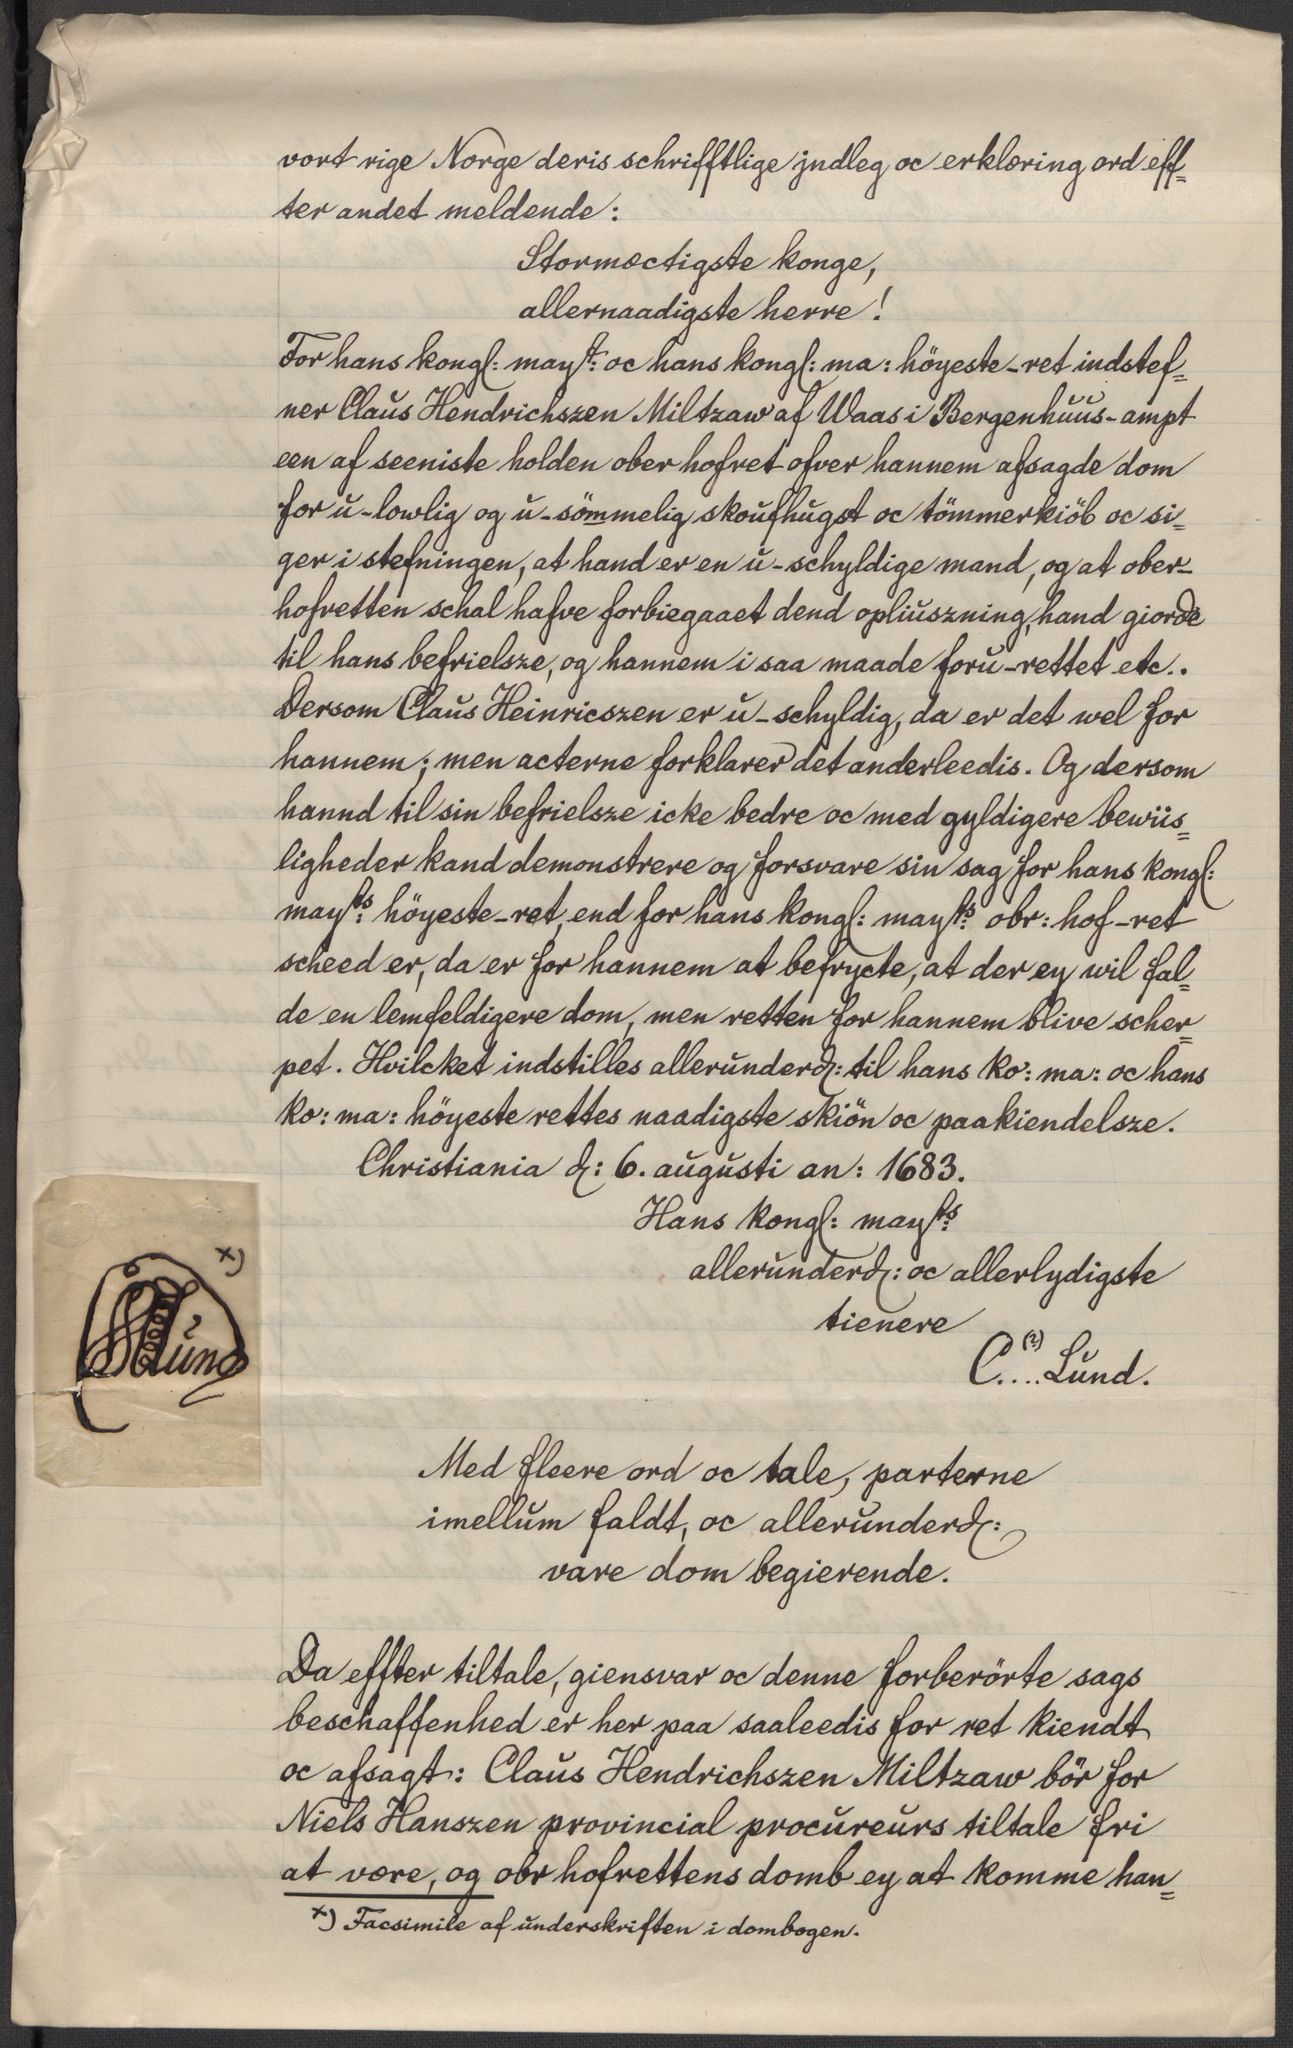 vort rige Norge deris schrifftlige jndleg oc erklæring ord eff=
ter andet meldende:
Stormæctigste konge,
allernaadigste herre!
For hans kongl: mayt: oc hans kongl: ma: höyeste-ret indstef=
ner Claus Hendrichszen Miltzaw af Waas i Bergenhuus-ampt
een af seeniste holden ober hofret ofver hannem afsagde dom
for u-lowlig og u-sömmelig skoufhugst oc tömmerkiöb oc si=
ger i stefningen, at hand er en u-schyldige mand, og at ober-
hofretten schal hafve forbiegaaet dend opliuszning, hand giorde
til hans befrielsze, og hannem i saa maade foru-rettet etc..
Dersom Claus Heinricszen er u-schyldig, da er det wel for
hannem; men acterne forklarer det anderleedis. Og dersom
hannd til sin befrielsze icke bedre oc med gyldigere bewiis=
ligheder kand demonstrere og forsvare sin sag for hans kongl:
mayts: höyeste-ret, end for hans kongl: mayts: obr: hof-ret
scheed er, da er for hannem at befrycte, at der ey wil fal=
de en lemfeldigere dom, men retten for hannem blive scher=
pet. Hvilcket indstilles allerunderd: til hans ko: ma: oc hans
ko: ma: höyeste rettes naadigste skiön oc paakiendelsze.
Christiania d: 6. augusti an: 1683.
Hans kongl: mayts:
allerunderd: oc allerlydigste
tienere
C(?).... Lund.
x)
Lund
Med fleere ord oc tale, parterne
imellum faldt, oc allerunderd:
vare dom begierende.
Da effter tiltale, giensvar oc denne forberörte sags
beschaffenhed er her paa saaleedis for ret kiendt
oc afsagt: Claus Hendrichszen Miltzaw bör for
Niels Hanszen provincial procureurs tiltale fri
at være, og obr hofrettens domb ey at komme han=
x) Facsimile af underskriften i dombogen.